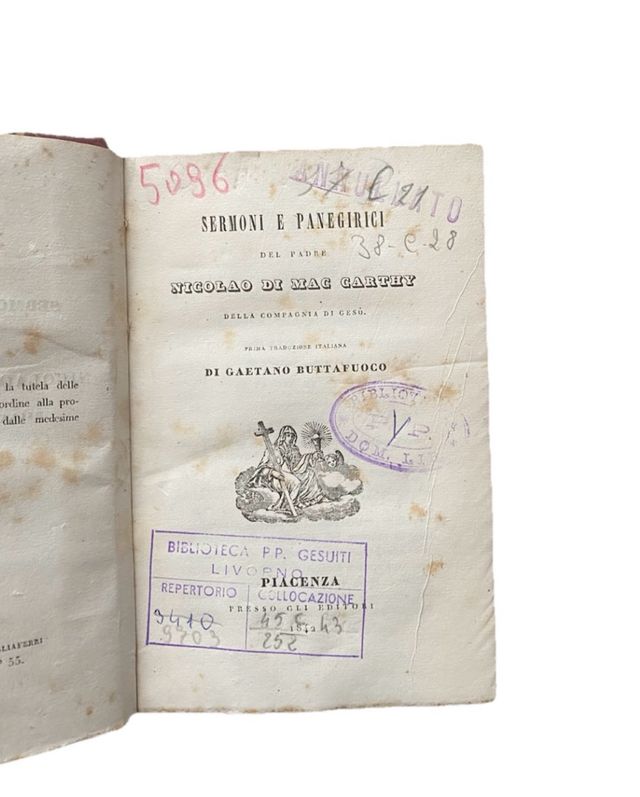 5096
37 C 21
ANNULLATO
SERMONI E PANEGIRICI
38-C-28
DEL PADRE
NICOLAO DI MAC CARTHY
DELLA COMPAGNIA DI GESÙ.
PRIMA TRADUZIONE ITALIANA
DI GAETANO BUTTAFUOCO
DOM. LI
BIBLIOTECA P.P. GESUITI
LIVORNO
PIACENZA
REPERTORIO COLLOCAZIONE
PRESSO GLI EDITORI
3410
9703
45 C 43
252
la tutela delle
ordine alla pro-
dalle medesime
55.